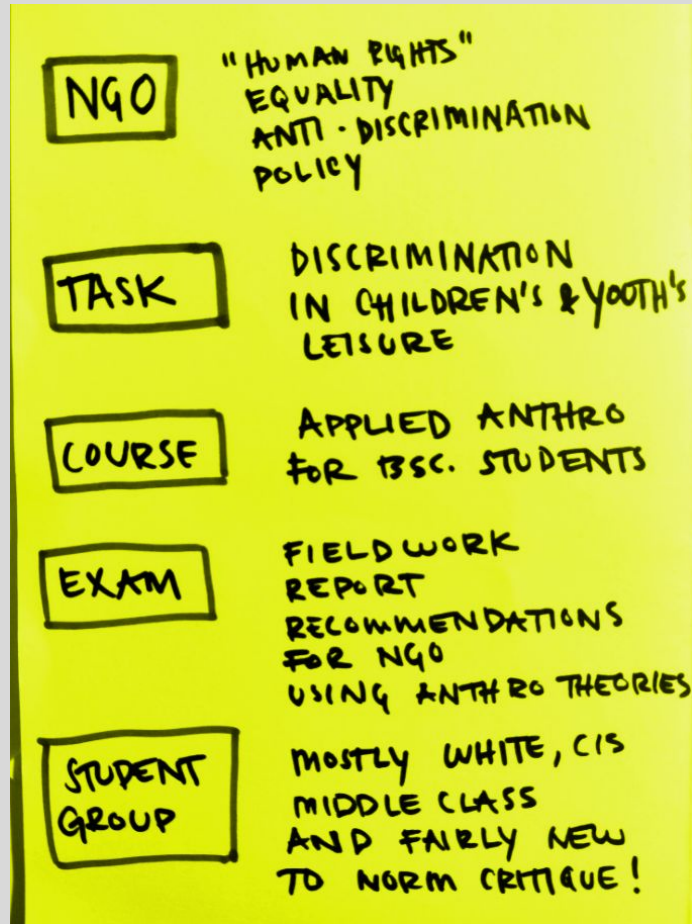 NGO
"HUMAN RIGHTS"
EQUALITY
ANTI-DISCRIMINATION
POLICY
TASK
DISCRIMINATION
IN CHILDREN'S & YOUTH'S
LEISURE
COURSE
APPLIED ANTHRO
FOR BSC. STUDENTS
EXAM
FIELDWORK
REPORT
RECOMMENDATIONS
FOR NGO
USING ANTHRO THEORIES
STUDENT
GROUP
MOSTLY WHITE, CIS
MIDDLE CLASS
AND FAIRLY NEW
TO NORM CRITIQUE!